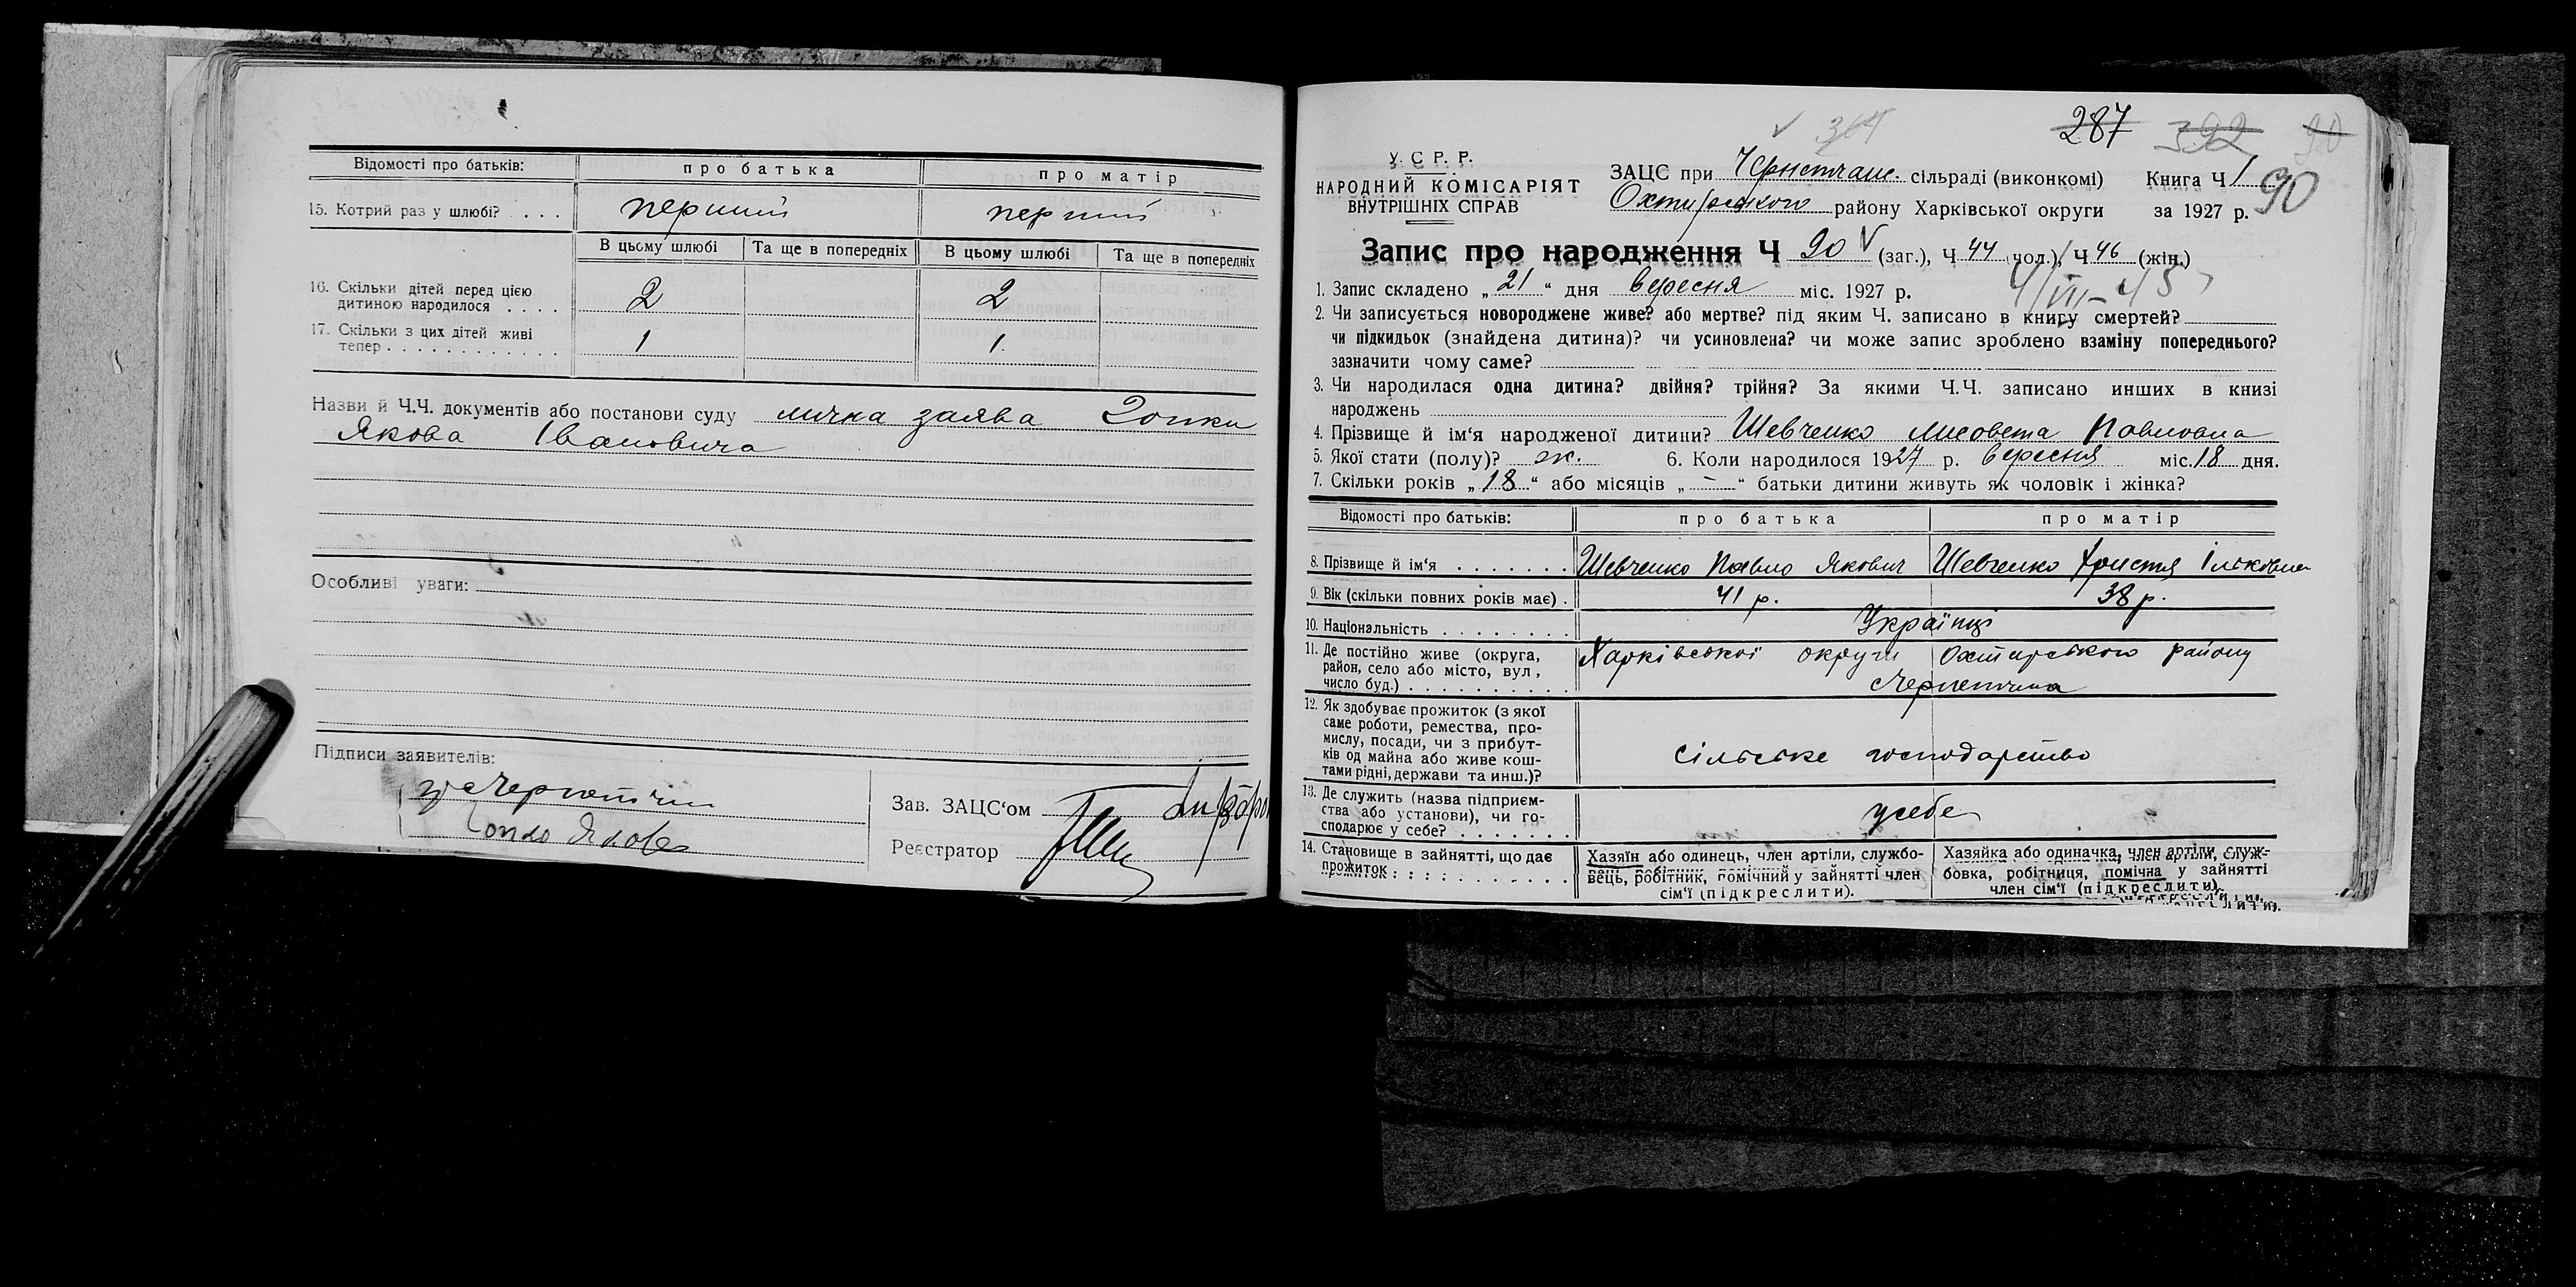 Відомості про батьків: про батька про матір
15. Котрий раз у шлюбі? . . . . перший перший
В цьому шлюбі Та ще в попередніх В цьому шлюбі Та ще в попередніх
16. Скільки дітей перед цією
дитиною народилося . . . . 2 2
17. Скільки з цих дітей живі
тепер . . . . . . . . . . . . . 1 1
Назви й Ч.Ч. документів або постанови суду лична заява
Якова Івановича
Особливі уваги:
Підписи заявителів:
Зав. ЗАЦС‘ом
Реєстратор
364
287 392 90
У. С. Р. Р.
НАРОДНИЙ КОМІСАРІЯТ
ВНУТРІШНІХ СПРАВ
ЗАЦС при сільраді (виконкомі) Книга Ч 1
Охтирського району Харківської округи за 1927 р. 90
Запис про народження Ч 90 (заг.), Ч 44 (чол.), Ч 46 (жін.)
1. Запис складено „ 21 “ дня вересня міс. 1927 р.
2. Чи записується новороджене живе? або мертве? під яким Ч. записано в книгу смертей?
чи підкидьок (знайдена дитина)? чи усиновлена? чи може запис зроблено взаміну попереднього?
зазначити чому саме?
3. Чи народилася одна дитина? двійня? трійня? За якими Ч.Ч. записано инших в книзі
народжень
4. Прізвище й ім‘я народженої дитини? Шевченко Лисовета Павловна
5. Якої стати (полу)? ж. 6. Коли народилося 1927 р. вересня міс. 18 дня.
7. Скільки років „ 18 “ або місяців „ – “ батьки дитини живуть як чоловік і жінка?
Відомості про батьків: про батька про матір
8. Прізвище й ім‘я . . . . . . . Шевченко Павло Якович Шевченко Христя Ільковна
9. Вік (скільки повних років має) . 41 р. 38 р.
10. Національність . . . . . . . . Українці
11. Де постійно живе (округа, Харківської округи Охтирського району
район, село або місто, вул.,
число буд.) . . . . . . . . . . с Чернетчина
12. Як здобуває прожиток (з якої
саме роботи, ремества, про-
мислу, посади, чи з прибут-
ків од майна або живе кош- сільське господарство
тами рідні, держави та инш.)?
13. Де служить (назва підприєм-
ства або установи), чи го- у себе
сподарює у себе? . . . . . . .
14. Становище в зайнятті, що дає
прожиток . . . . . . . . . . .
Хазяїн або одинець, член артіли, службо-
вець, робітник, помічний у зайнятті член
сім‘ї (підкреслити).
Хазяйка або одиначка, член артіли, служ-
бовка, робітниця, помічна у зайнятті
член сім‘ї (підкреслити).